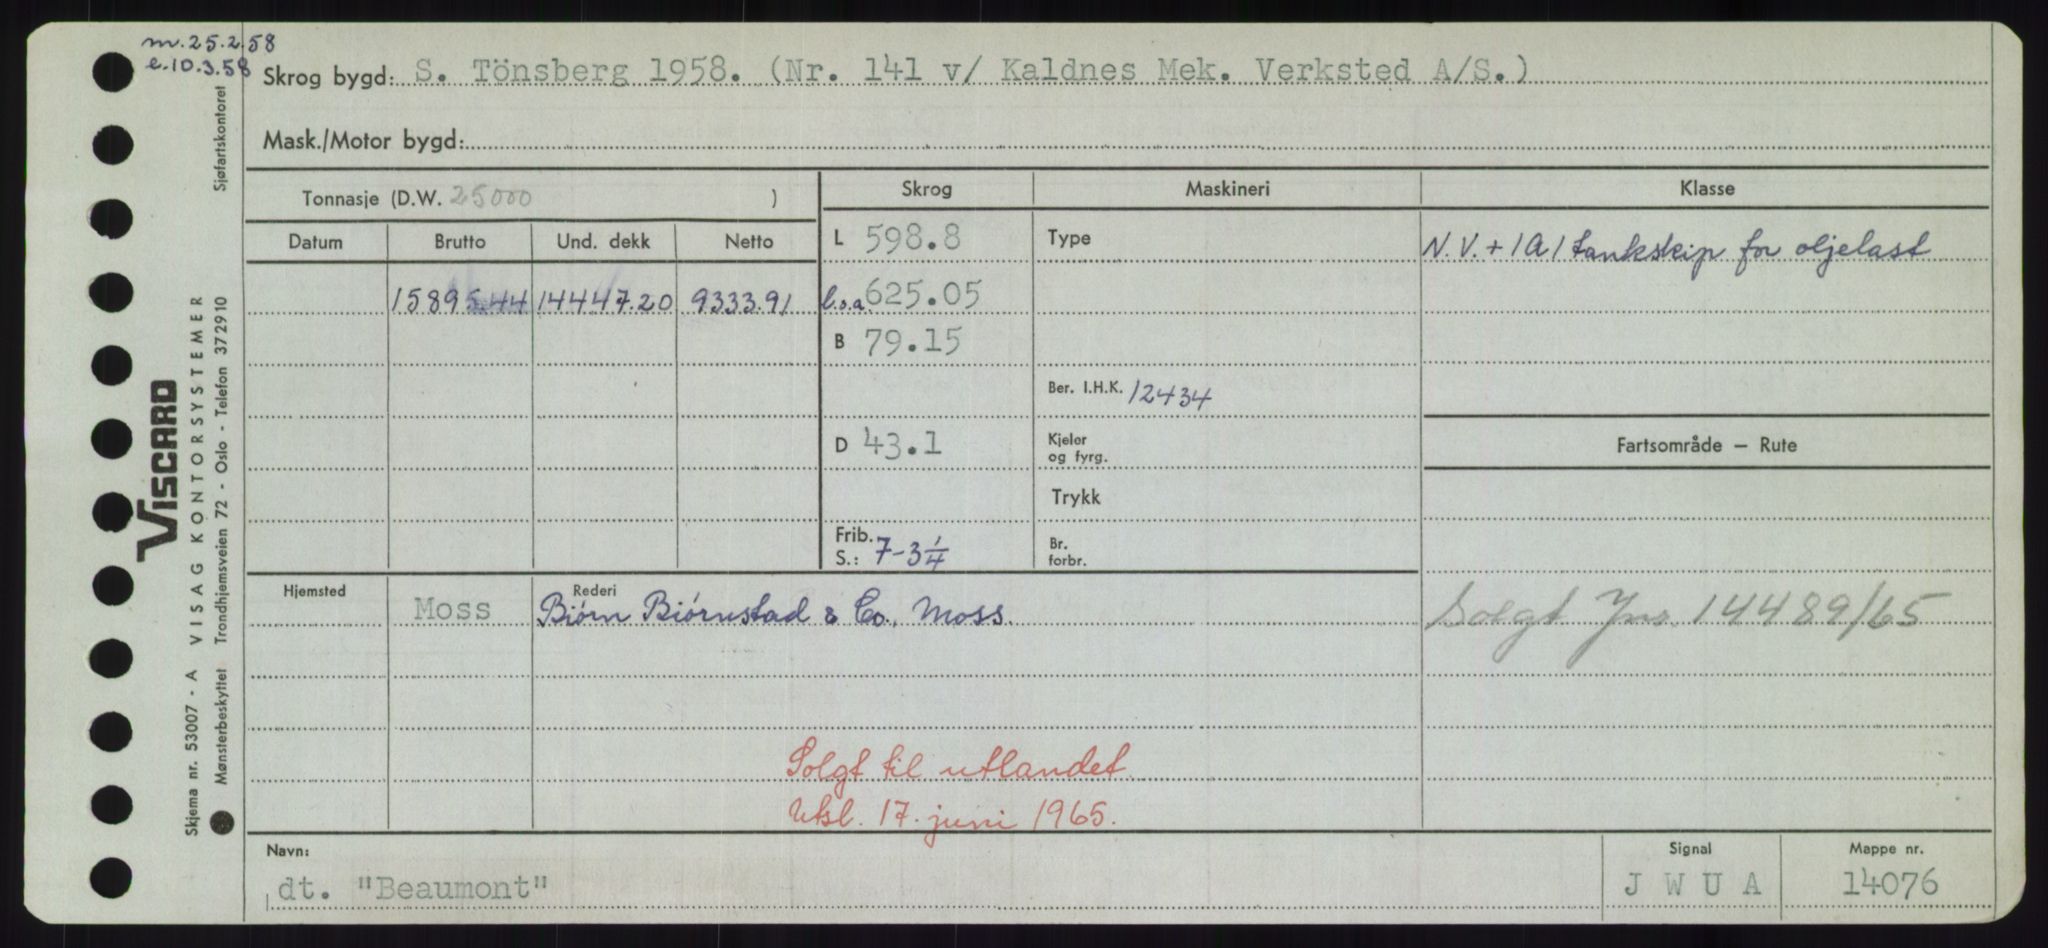 m. 25.2.58
e. 10.3.58
Skrog bygd: S. Tönsberg 1958. (Nr. 141 v/ Kaldnes Mek. Verksted A/S.)
Mask./Motor bygd:
Tonnasje (D.W. 25000 )
Skrog Maskineri Klasse
Datum Brutto Und. dekk Netto
L 598.8
Type
N.V. + 1A1 tankskip for oljelast
15895.44 14447.20 9333.91
l.o.a. 625.05
B 79.15
Ber. I.H.K. 12434
D 43.1
Kjeler
og fyrg.
Fartsområde — Rute
Trykk
Frib.
S.: 7-3 1/4
Br.
forbr.
Hjemsted Moss
Rederi
Biörn Biörnstad & Co., Moss.
Solgt Jnr. 14489/65
Solgt til utlandet
Utsl. 17. juni 1965.
Navn:
dt. "Beaumont"
Signal
J W U A
Mappe nr.
14076
Sjøfartskontoret
VISCARD
Skjema nr. 53007 - A VISAG KONTORSYSTEMER
Mønsterbeskyttet Trondhjemsveien 72 - Oslo - Telefon 372910